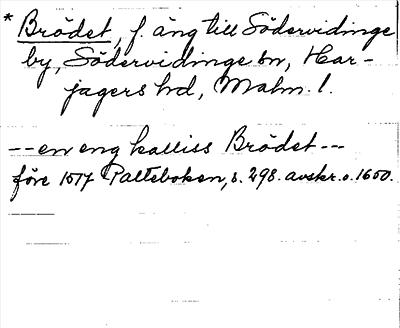 * Brödet, f. äng till Södervidinge
by, Södervidinge sn, Har-
jagers hd, Malm. l.
-- en eng kalliss Brödet ---
före 1517 Palteboken, s. 298. avskr. o. 1600.